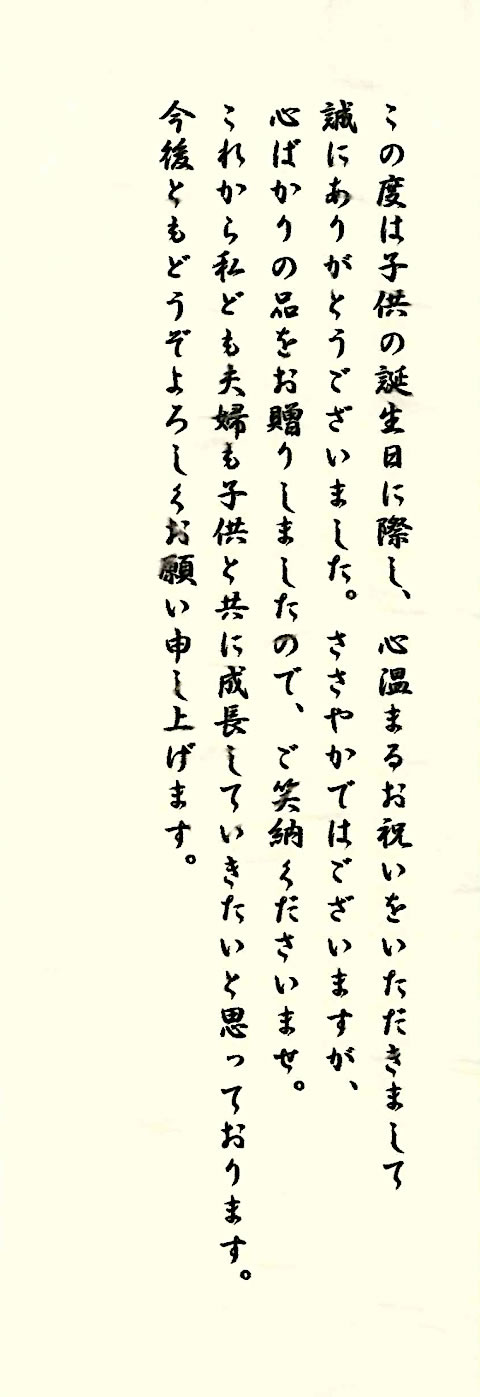 この度は子供の誕生日に際し、心温まるお祝いをいただきまして
誠にありがとうございました。ささやかではございますが、
心ばかりの品をお贈りしましたので、ご笑納くださいませ。
これから私ども夫婦も子供と共に成長していきたいと思っております。
今後ともどうぞよろしくお願い申し上げます。